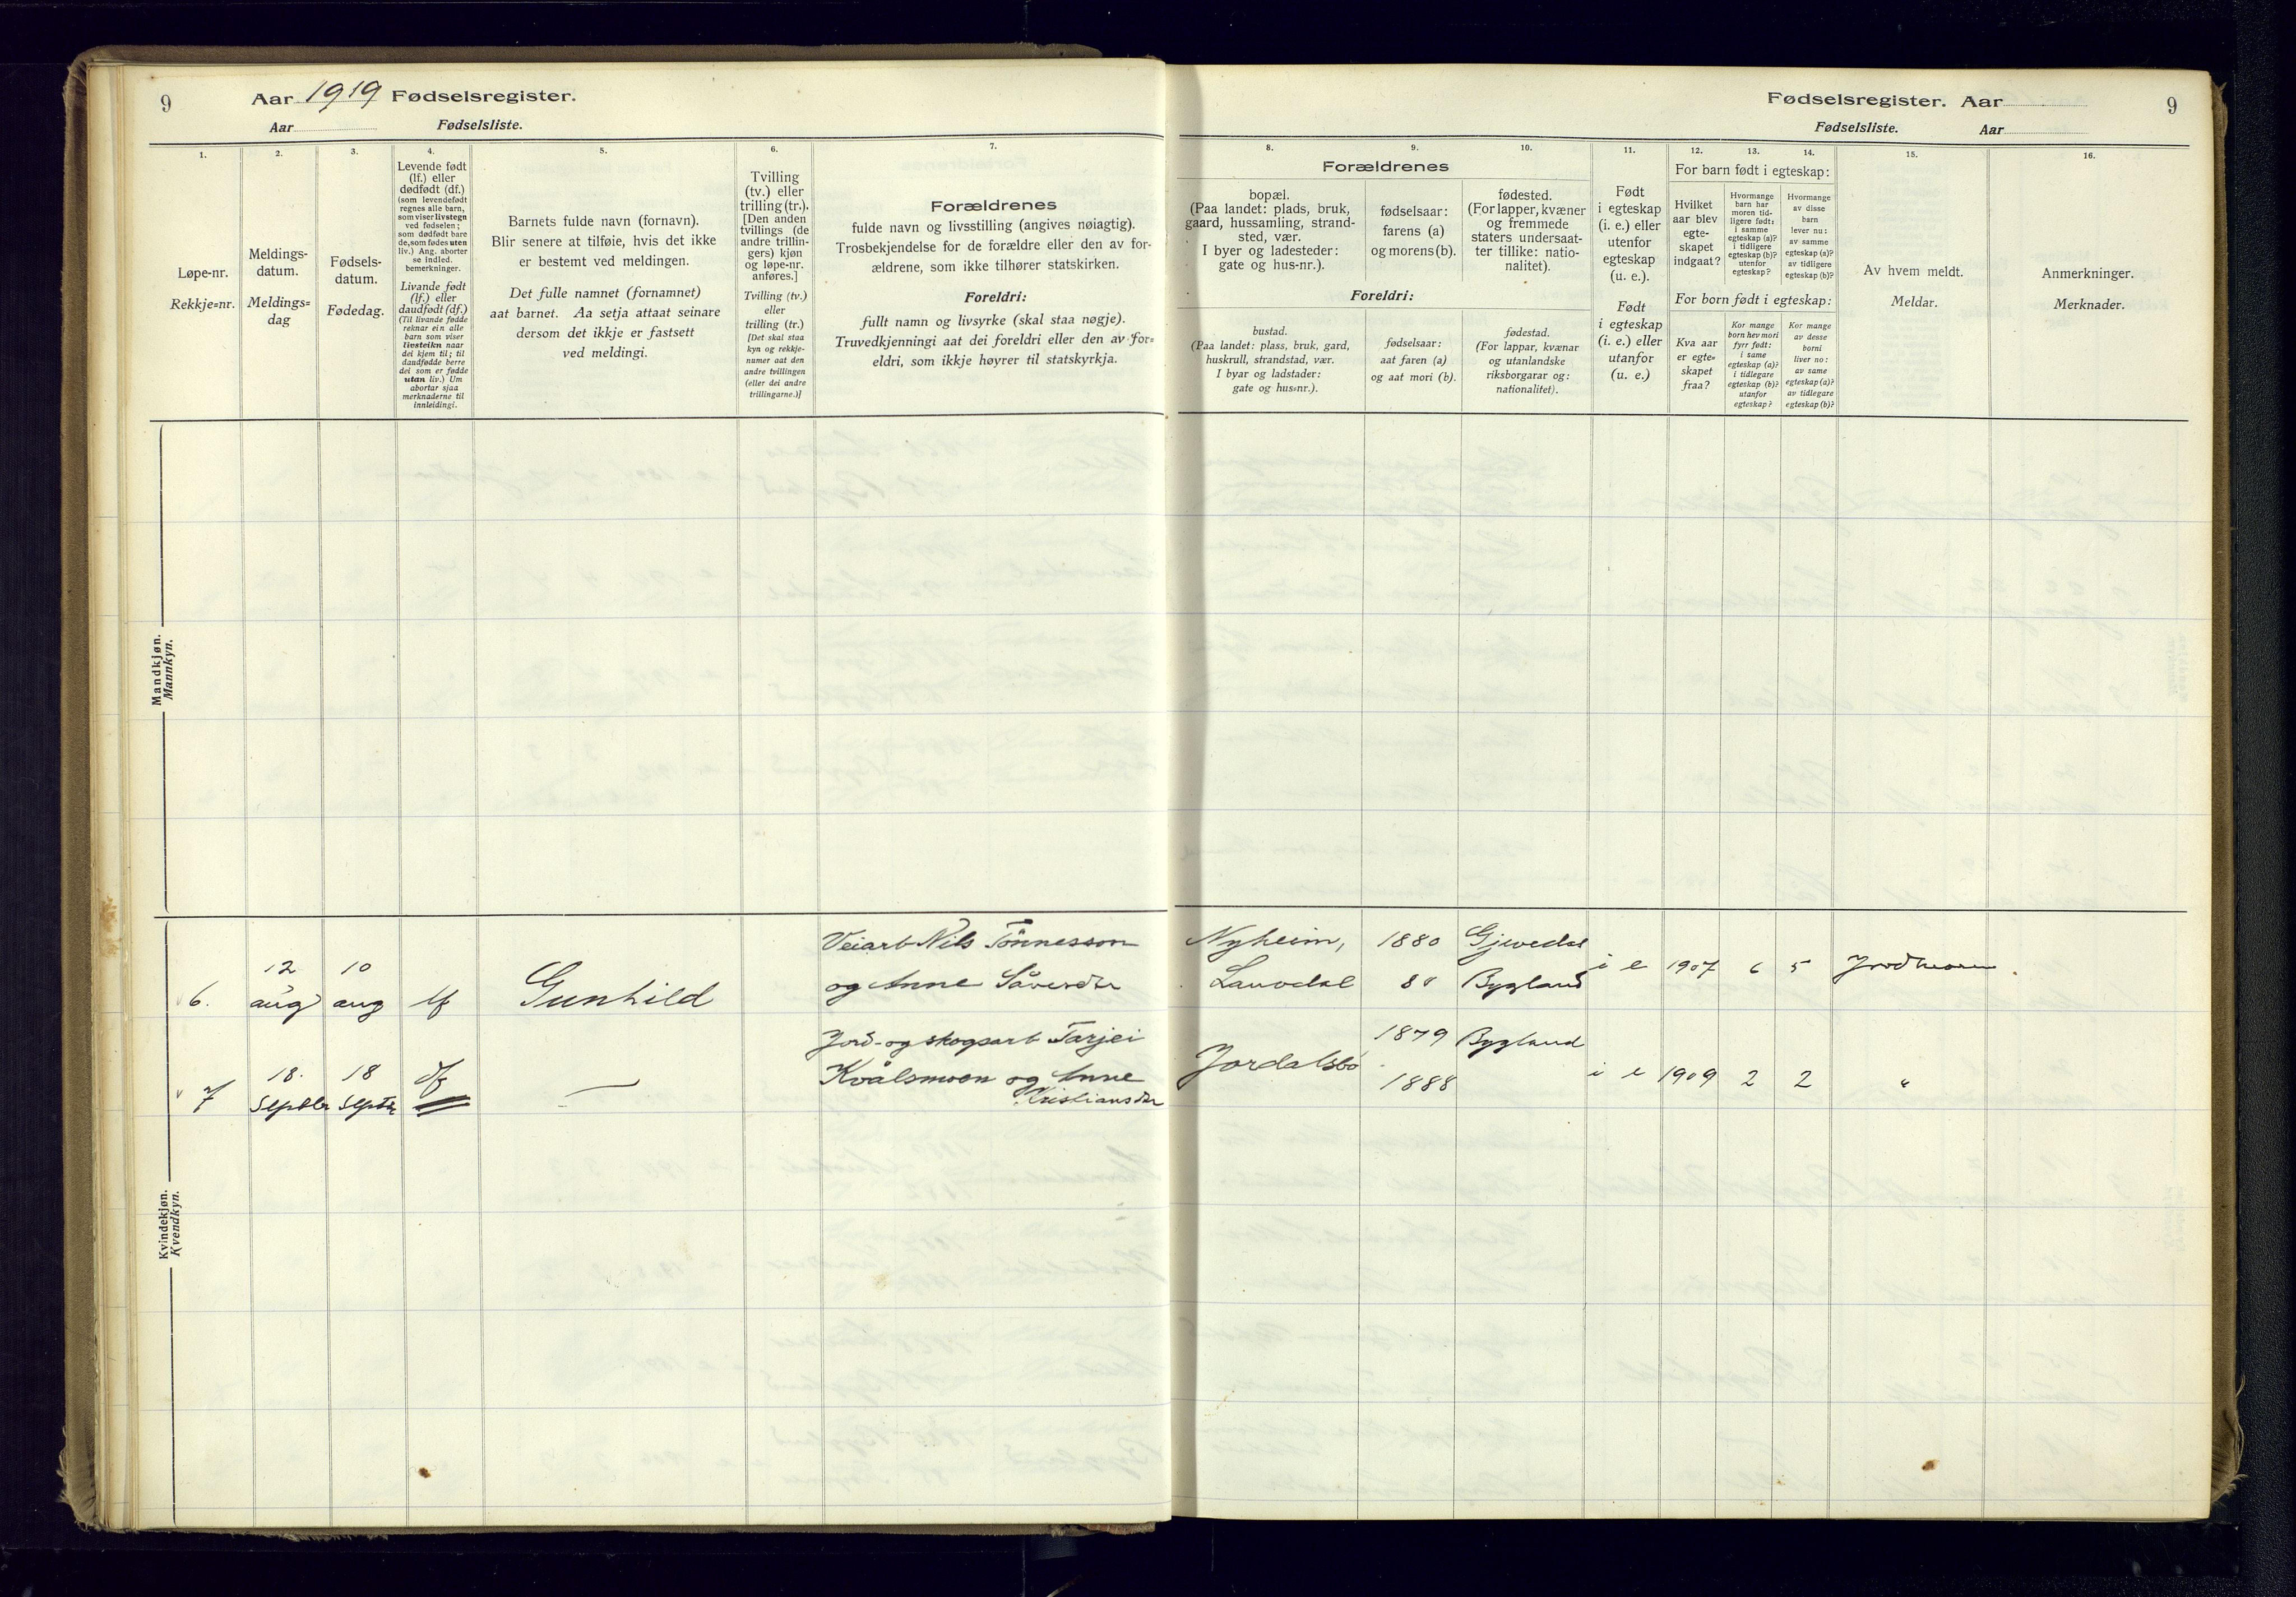 9
Aar 1919 Fødselsregister.
Aar Fødselsliste.
1.
Løpe-nr.
Rekkje-nr.
2.
Meldings-
datum.
Meldings-
dag
3.
Fødsels-
datum.
Fødedag.
4.
Levende født
(lf.) eller
dødfødt (df.)
(som levendefødt
regnes alle barn,
som viser livstegn
ved fødselen;
som dødfødt bare
de, som fødes uten
liv.) Ang. aborter
se indled.
bemerkninger.
Livande født
(lf.) eller
daudfødt (df.)
(Til livande fødde
reknar ein alle
barn som viser
livsteikn naar
dei kjem til; til
daudfødde berre
dei som er fødde
utan liv.) Um
abortar sjaa
merknaderne til
innleidingi.
5.
Barnets fulde navn (fornavn).
Blir senere at tilføie, hvis det ikke
er bestemt ved meldingen.
Det fulle namnet (fornamnet)
aat barnet. Aa setja attaat seinare
dersom det ikkje er fastsett
ved meldingi.
6.
Tvilling
(tv.) eller
trilling (tr.).
[Den anden
tvillings (de
andre trillin-
gers) kjøn
og løpe-nr.
anføres.]
Tvilling (tv.)
eller
trilling (tr.)
[Det skal staa
kyn og rekkje-
numer aat den
andre tvillingen
(eller dei andre
trillingarne.)]
7.
Forældrenes
fulde navn og livsstilling (angives nøiagtig).
Trosbekjendelse for de forældre eller den av for-
ældrene, som ikke tilhører statskirken.
Foreldri:
fullt namn og livsyrke (skal staa nøgje).
Truvedkjenningi aat dei foreldri eller den av for-
eldri, som ikkje høyrer til statskyrkja.
Fødselsregister. Aar
9
Fødselsliste. Aar
8. 9. 10.
Forældrenes
bopæl.
(Paa landet: plads, bruk,
gaard, hussamling, strand-
sted, vær.
I byer og ladesteder:
gate og hus-nr.).
fødselsaar:
farens (a)
og morens (b).
fødested.
(For lapper, kvæner
og fremmede
staters undersaat-
ter tillike: natio-
nalitet).
Foreldri:
bustad.
(Paa landet: plass, bruk, gard,
huskrull, strandstad, vær.
I byar og ladstader:
gate og hus-nr.).
fødselsaar:
aat faren (a)
og aat mori (b).
fødestad.
(For lappar, kvænar
og utanlandske
riksborgarar og:
nationalitet).
11.
Født
i egteskap
(i. e.) eller
utenfor
egteskap
(u. e.).
Født
i egteskap
(i. e.) eller
utanfor
(u. e.)
12. 13. 14.
For barn født i egteskap:
Hvilket
aar blev
egte-
skapet
indgaat?
Hvormange
barn har
moren tid-
ligere født:
i samme
egteskap (a)?
i tidligere
egteskap (b)?
utenfor
egteskap?
Hvormange
av disse
barn
lever nu:
av samme
egteskap (a)?
av tidligere
egteskap (b)?
For born født i egteskap:
Kva aar
er egte-
skapet
fraa?
Kor mange
born hev mori
fyrr født:
i same
egteskap (a)?
i tidlegare
egteskap (b)?
utanfor
egteskap?
Kor mange
av desse
borni
liver no:
av same
egteskap (a)?
av tidlegare
egteskap (b)?
15.
Av hvem meldt.
Meldar.
16.
Anmerkninger.
Merknader.
Mandkjøn.
Mannkyn.
Kvindekjøn.
Kvendkyn.
6. 12 aug 10 aug lf Gunhild
Veiarb Nils Tönnesson
og Anne Såvesdtr
Nyheim, 1880 Gjevedal
Lauvdal 80 Bygland
i e 1907 6 5 Jordmoren
7 18. Septbr 18 Septbr df —
Jord- og skogsarb Tarjei
Kvålsmoen og Anne
Kristiansdtr
Jordalsbö 1879 Bygland
1888
i e 1909 2 2 "